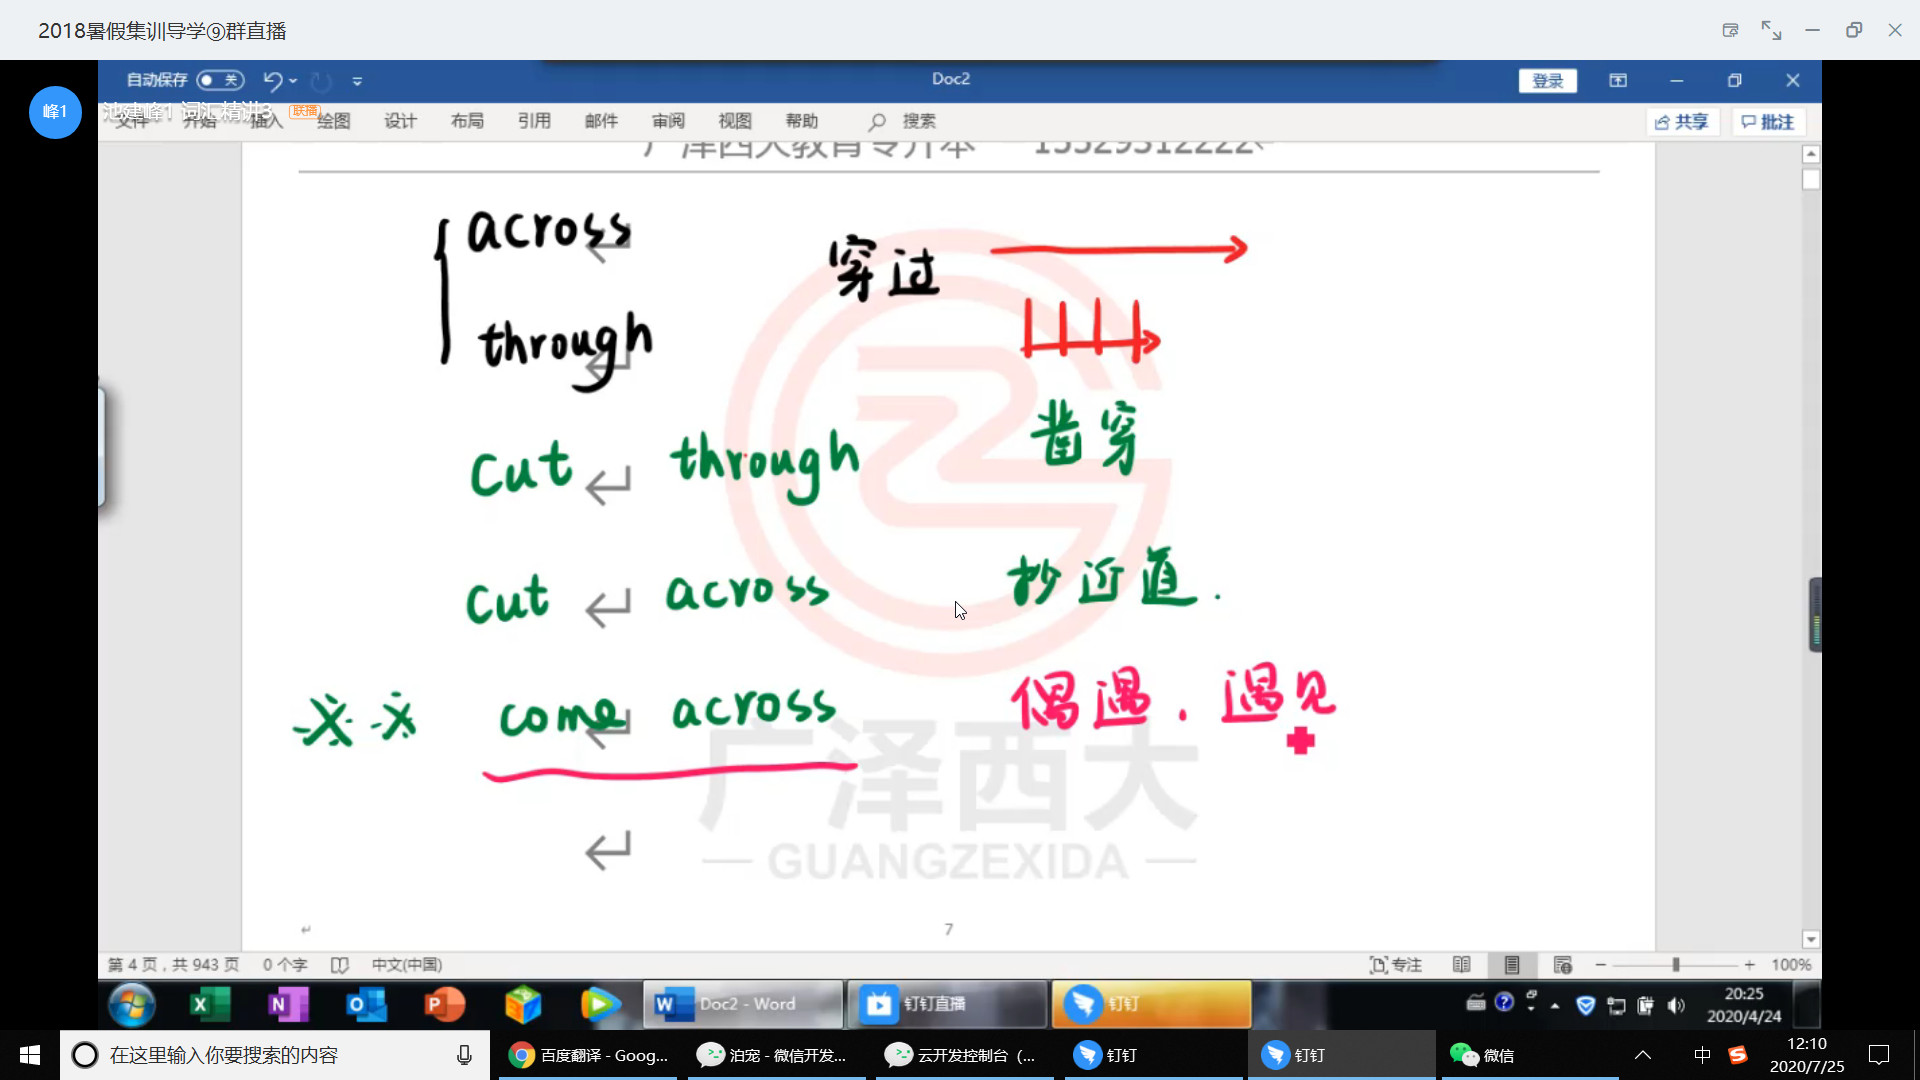 2018暑假集训导学⑨群直播
自动保存 关 Doc2 登录
峰1 池建峰1 词汇精讲3 联播
文件 开始 插入 绘图 设计 布局 引用 邮件 审阅 视图 帮助 搜索 共享 批注
广泽西大教育专升本 15529312222
across 穿过
through
cut through 凿穿
cut across 抄近道.
come across 偶遇.遇见
广泽西大
GUANGZEXIDA
7
第 4 页,共 943 页 0 个字 中文(中国) 专注 100%
Doc2 - Word 钉钉直播 钉钉 20:25
2020/4/24
在这里输入你要搜索的内容 百度翻译 - Goog... 泊宠 - 微信开发... 云开发控制台(... 钉钉 钉钉 微信 中 12:10
2020/7/25